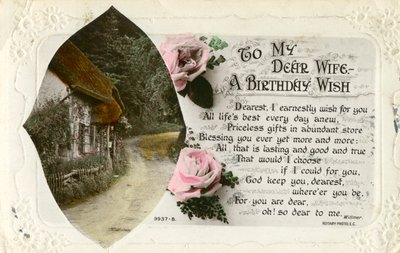 To My
Dear Wife-
A Birthday Wish
Dearest, I earnestly wish for you
All life's best every day anew,
Priceless gifts in abundant store
Blessing you ever yet more and more:
All that is lasting and good and true
That would I choose
if I could for you,
God keep you, dearest,
where'er you be,
For you are dear,
oh! so dear to me.
9937-B.
ROTARY PHOTO, E.C.